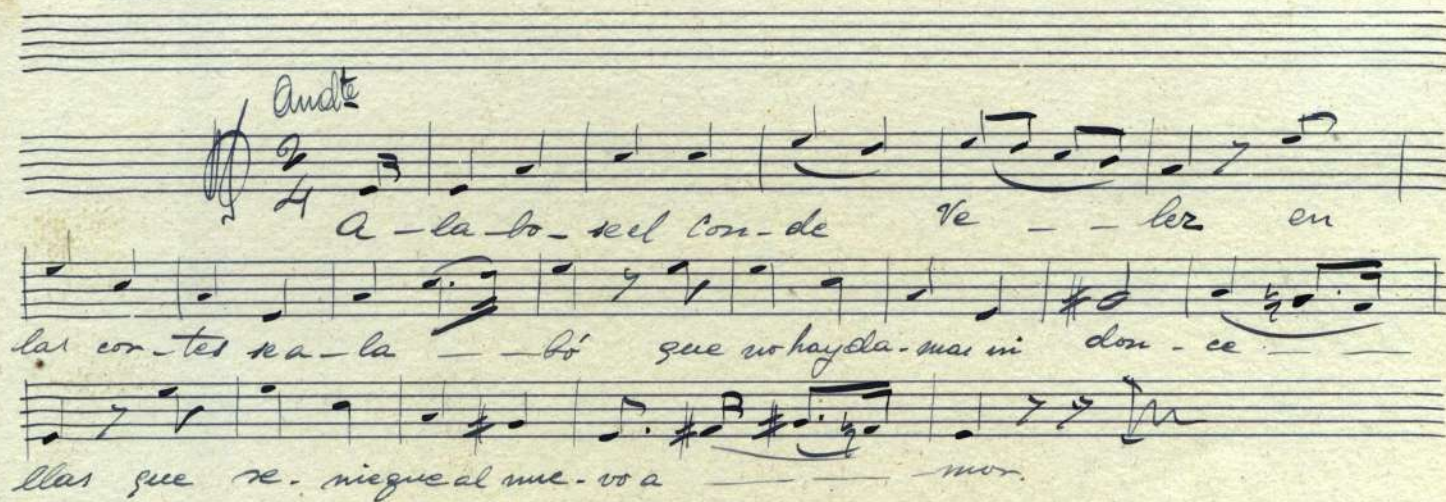 Andte
2
4
A - la - bo - seel Con - de Ve - - ler en
las cor - tes sea - la - - bó que no hay da - mas ni don - ce - -
llas que se - niegue al nue - vo a - - - mor.